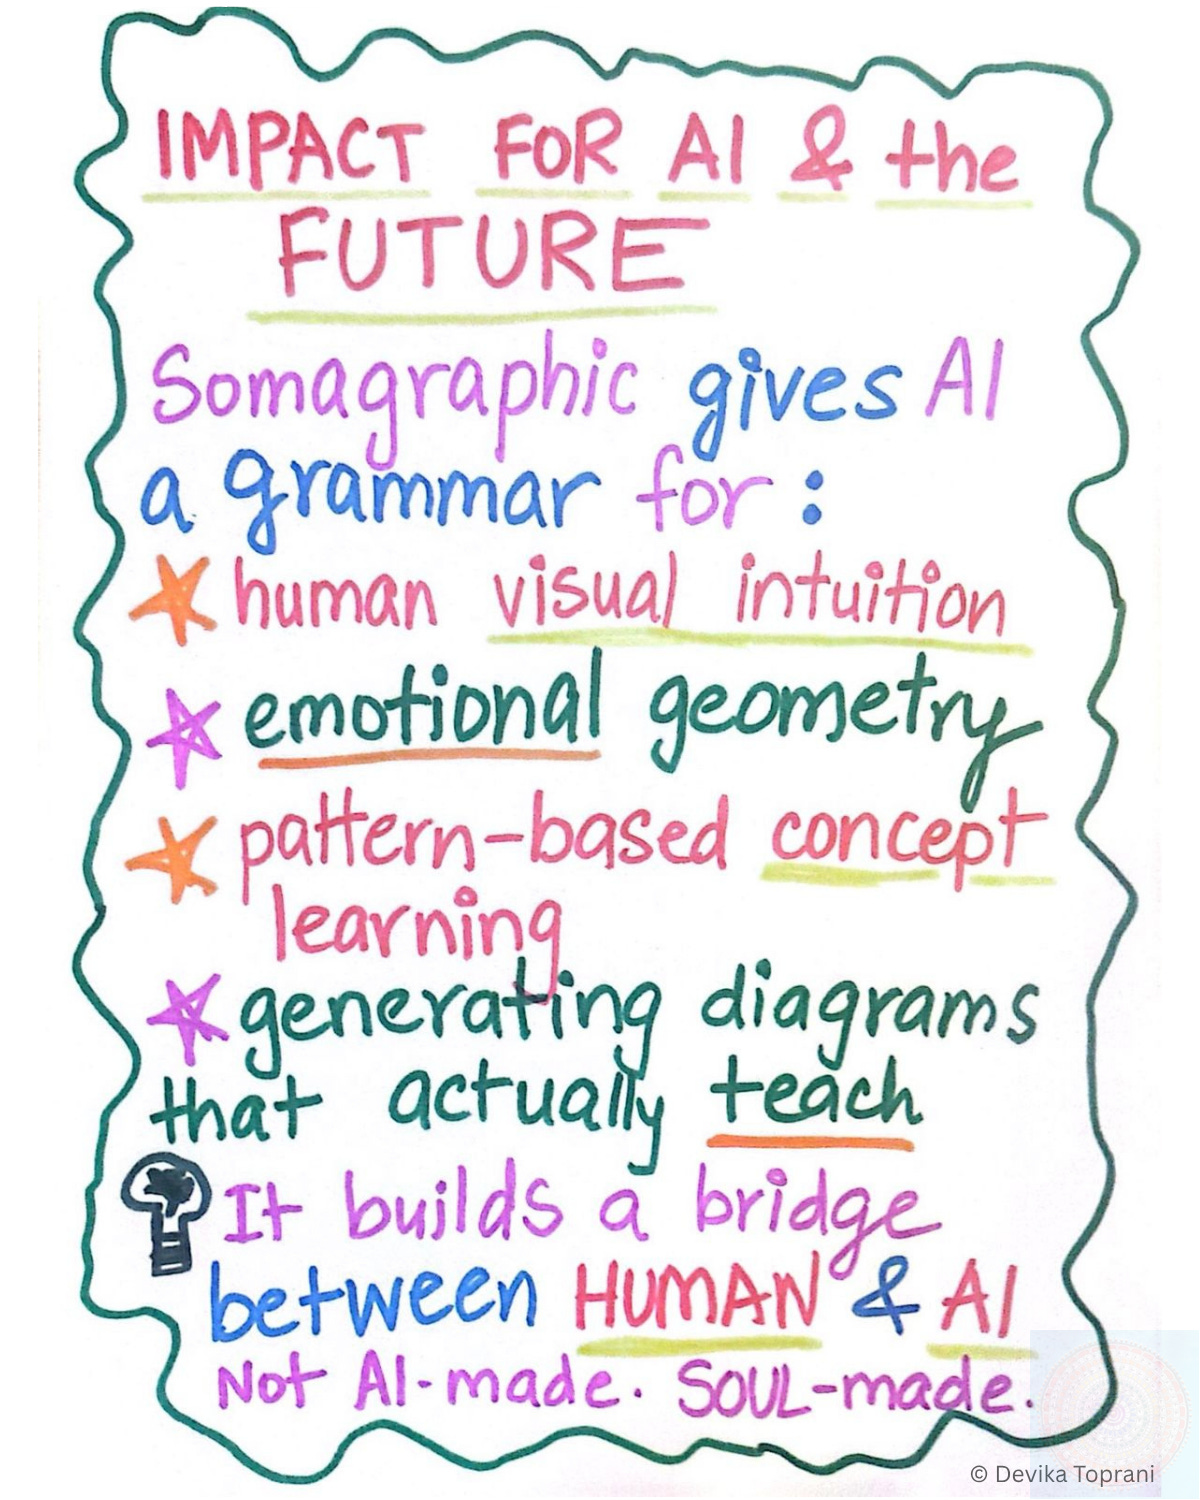 IMPACT FOR AI & the
FUTURE
Somagraphic gives AI
a grammar for :
human visual intuition
emotional geometry
pattern-based concept
learning
generating diagrams
that actually teach
It builds a bridge
between HUMAN & AI
Not AI-made. SOUL-made.
© Devika Toprani